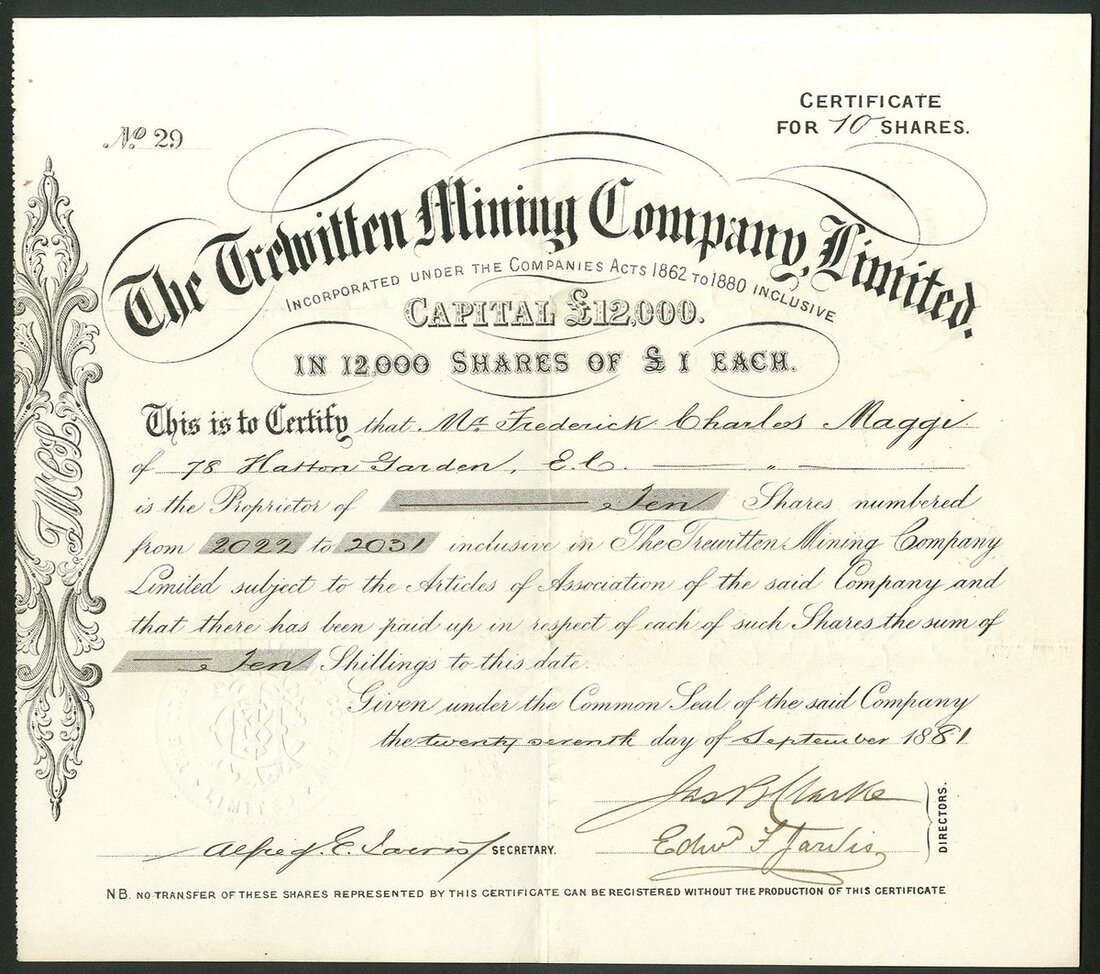 No 29
CERTIFICATE
FOR 10 SHARES.
The Trewitten Mining Company, Limited.
INCORPORATED UNDER THE COMPANIES ACTS 1862 TO 1880 INCLUSIVE
CAPITAL £12,000.
IN 12,000 SHARES OF £1 EACH.
This is to Certify that Mr. Frederick Charles Maggi
of 78 Hatton Garden, E.C. — " —
is the Proprietor of — Ten Shares numbered
from 2022 to 2031 inclusive in The Trewitten Mining Company
Limited subject to the Articles of Association of the said Company and
that there has been paid up in respect of each of such Shares the sum of
— Ten Shillings to this date.
Given under the Common Seal of the said Company
the twenty seventh day of September 1881
TMCL
Jas B Clarke
Edwd F Jarvis
DIRECTORS.
Alfred E. SECRETARY.
NB. NO TRANSFER OF THESE SHARES REPRESENTED BY THIS CERTIFICATE CAN BE REGISTERED WITHOUT THE PRODUCTION OF THIS CERTIFICATE